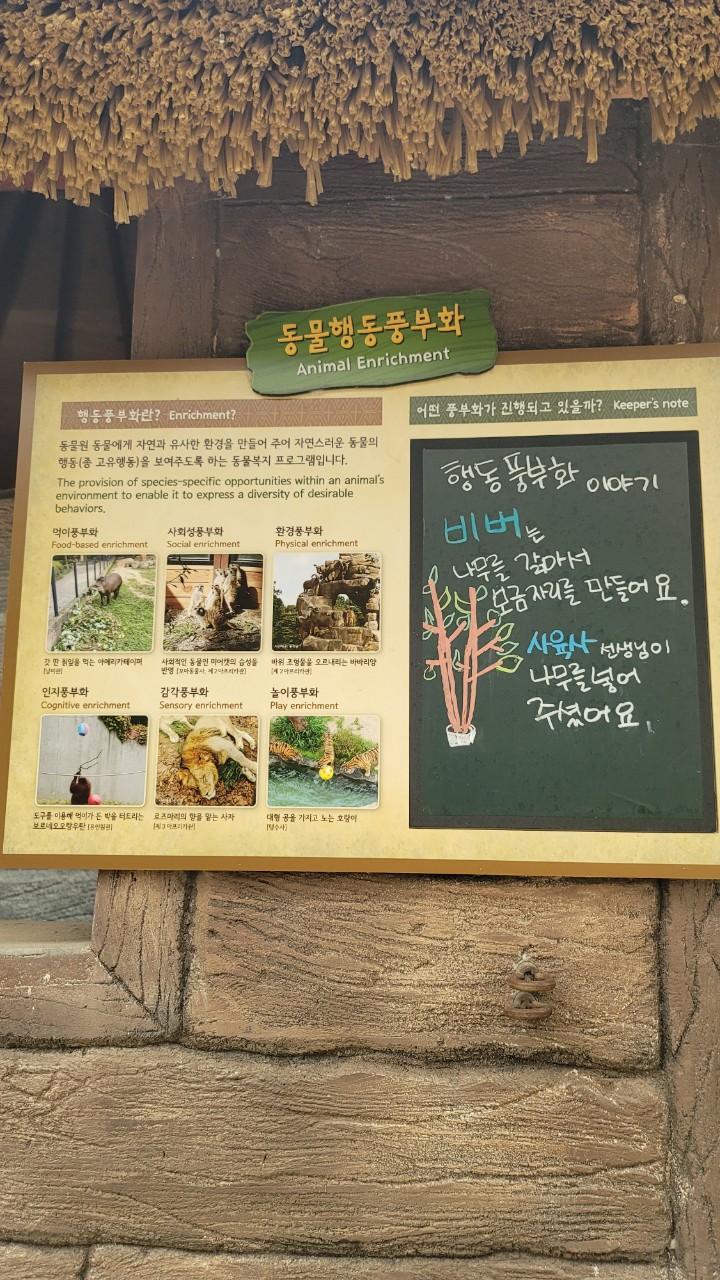 동물행동풍부화
Animal Enrichment
행동풍부화란? Enrichment?
동물원 동물에게 자연과 유사한 환경을 만들어 주어 자연스러운 동물의
행동(종 고유행동)을 보여주도록 하는 동물복지 프로그램입니다.
The provision of species-specific opportunities within an animal's
environment to enable it to express a diversity of desirable
behaviors.
먹이풍부화
Food-based enrichment
갓 딴 칡잎을 먹는 아메리카테이퍼
[남미관]
사회성풍부화
Social enrichment
사회적인 동물인 미어캣의 습성을
반영 [꼬마동물사, 제2아프리카관]
환경풍부화
Physical enrichment
바위 조형물을 오르내리는 바바리양
[제2아프리카관]
인지풍부화
Cognitive enrichment
도구를 이용해 먹이가 든 박을 터트리는
보르네오오랑우탄 [유인원관]
감각풍부화
Sensory enrichment
로즈마리의 향을 맡는 사자
[제3아프리카관]
놀이풍부화
Play enrichment
대형 공을 가지고 노는 호랑이
[맹수사]
어떤 풍부화가 진행되고 있을까? Keeper's note
행동풍부화 이야기
비버는
나무를 갉아서
보금자리를 만들어요.
사육사 선생님이
나무를 넣어
주셨어요.